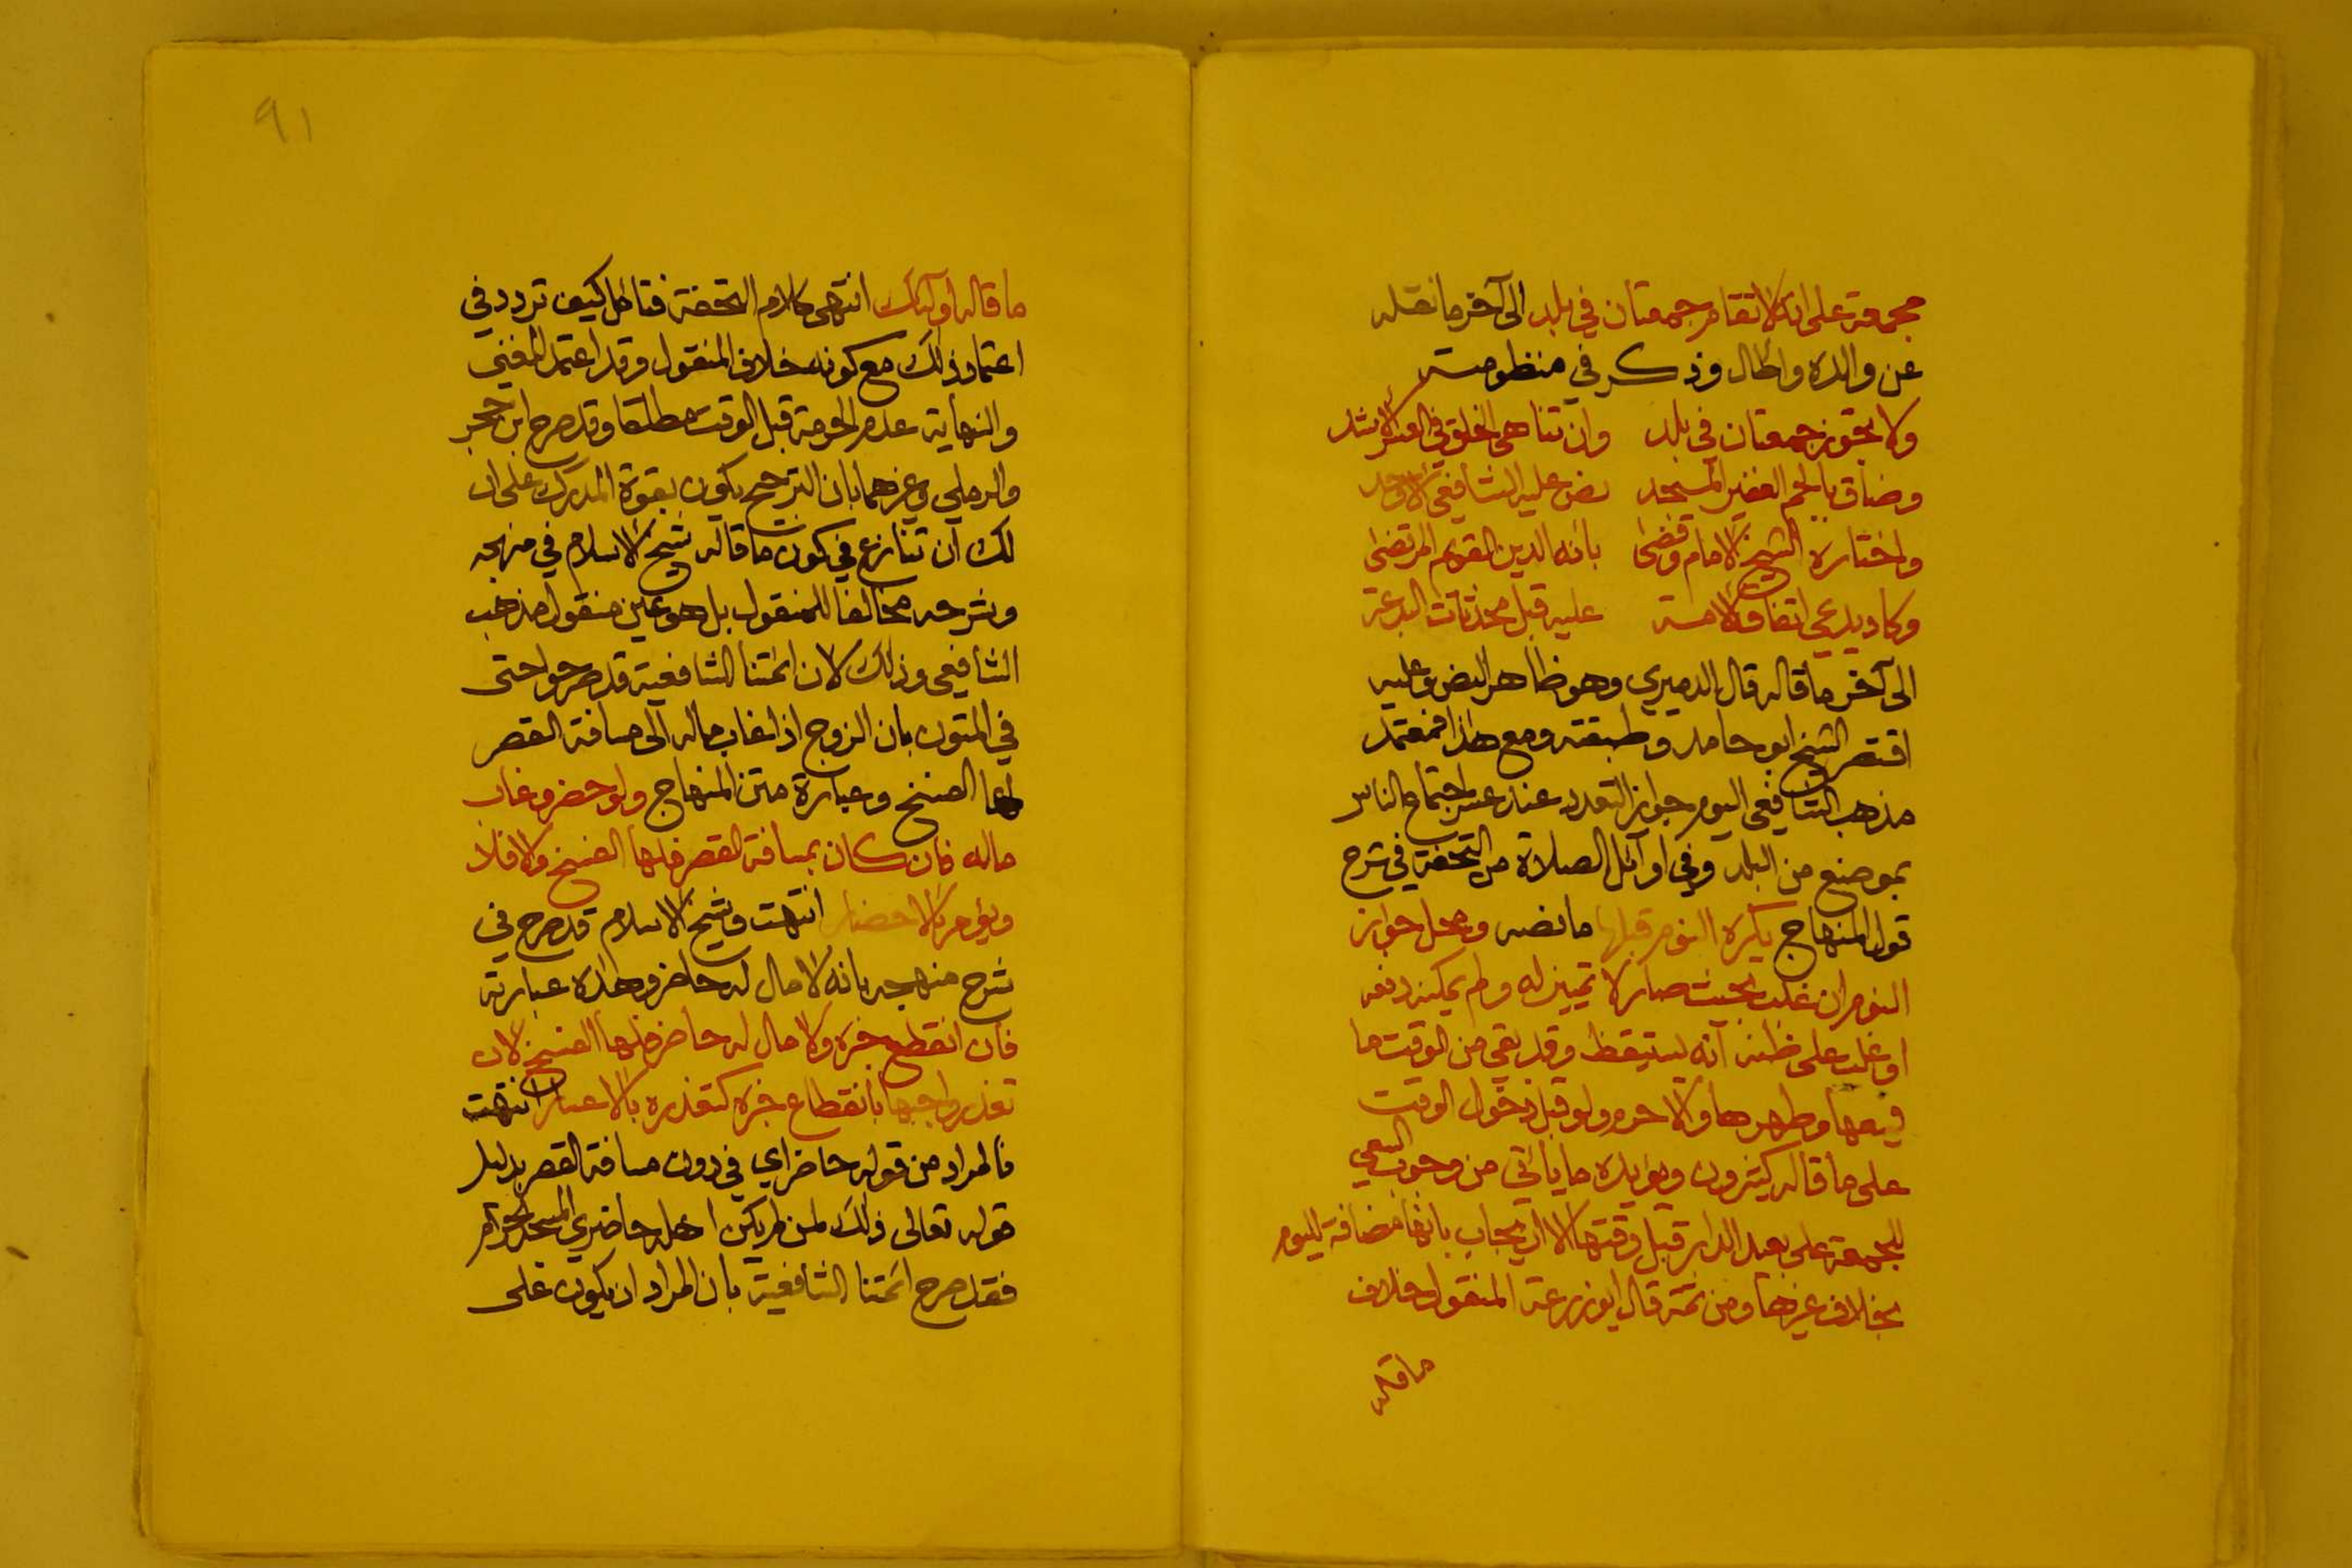 مجمعة على انه لا تقام جمعتان في بلد الى آخر ما نقله
عن والده واطال وذكر في منظومته
ولا يجوز جمعتان في بلد وان تناهى الخلق في العد الاشد
وضاق بالجم الغفير المسجد نص عليه الشافعي الاوحد
واختاره الشيخ الامام وقضى بانه الدين القويم المرتضى
وكاد يدعي اتفاق الامة عليه قبل محدثات البدعة
الى آخر ما قاله قال الدميري وهو ظاهر النص وعليه
اقتصر الشيخ ابو حامد وطبقته ومع هذا فمعتمد
مذهب الشافعي اليوم جواز التعدد عند عسر اجتماع الناس
بموضع من البلد وفي اوآئل الصلاة من التحفة في شرح
قول المنهاج يكره النوم قبلها ما نصه ومحل جواز
النوم ان غلب بحيث صار لا تمييز له ولم يمكنه دفعه
او غلب على ظنه انه يستيقظ وقد بقي من الوقت ما
يسعها وطهرها والا حرم ولو قبل دخول الوقت
على ما قاله كثيرون ويؤيده ما يأتي من وجوب السعي
للجمعة على بعيد الدار قبل وقتها الا ان يجاب بانها مضافة لليوم
بخلاف غيرها ومن ثمة قال ابو زرعة المنقول خلاف
ما قاله
٩١
ما قاله اولئك انتهى كلام التحفة فتامل كيف تردد في
اعتماد ذلك مع كونه خلاف المنقول وقد اعتمد المغني
والنهاية عدم الحرمة قبل الوقت مطلقا وقد صرح ابن حجر
والرملي وغيرهما بان الترجيح يكون بقوة المدرك على ان
لك ان تنازع في كون ما قاله شيخ الاسلام في منهجه
وشرحه مخالفا للمنقول بل هو عين منقول مذهب
الشافعي وذلك لان ائمتنا الشافعية قد صرحوا حتى
في المتون بان الزوج اذا غاب ماله الى مسافة القصر
لها الفسخ وعبارة متن المنهاج ولو حضر وغاب
ماله فان كان بمسافة القصر فلها الفسخ والا فلا
ويؤمر بالاحضار انتهت وشيخ الاسلام قد صرح في
شرح منهجه بانه لا مال له حاضر وهذه عبارته
فان انقطع خبره ولا مال له حاضر فلها الفسخ لان
تعذر واجبها بانقطاع خبره كتعذره بالاعسار انتهت
فالمراد من قوله حاضر اي في دون مسافة القصر بدليل
قوله تعالى ذلك لمن لم يكن اهله حاضري المسجد الحرام
فقد صرح ائمتنا الشافعية بان المراد ان يكون على